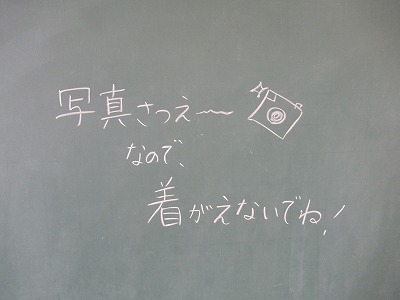 写真さつえ〜
なので、
着がえないでね!